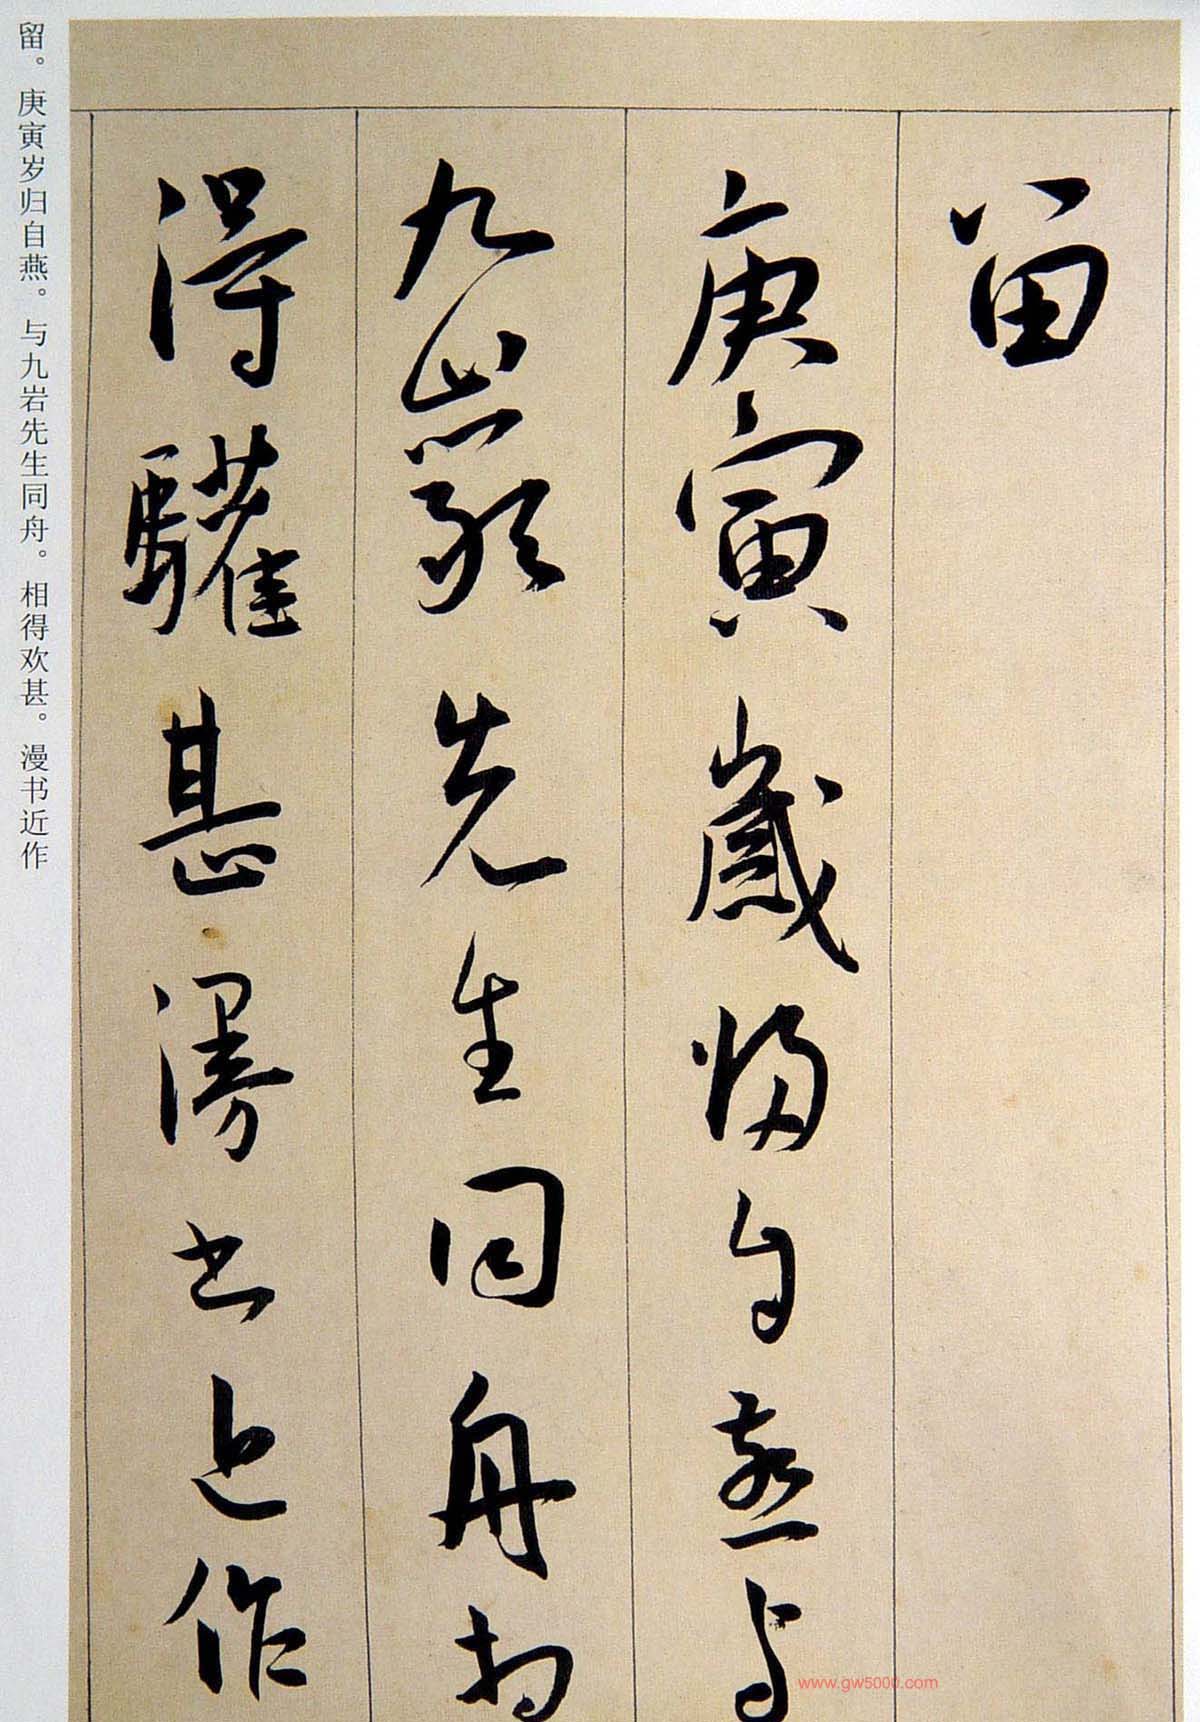 留
庚寅歲歸自燕与
九巖先生同舟相
得驩甚漫书近作
留。庚寅岁归自燕。与九岩先生同舟。相得欢甚。漫书近作
www.gw5000.com